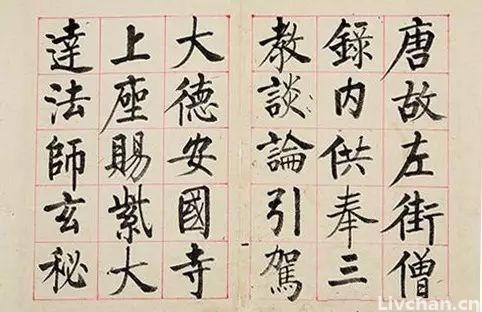 唐故左街僧
錄内供奉三
教談論引駕
大德安國寺
上座賜紫大
達法師玄秘
Livchan.cn